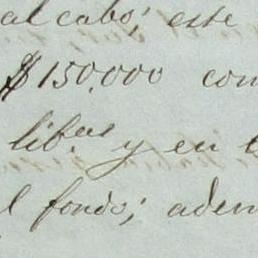 al cabo; este
$150.000 con
lib.as y en e
l fondo; adem